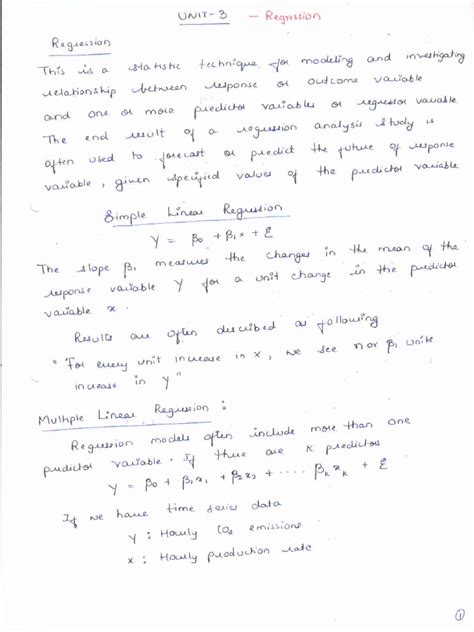 UNIT-3 - Regression
Regression
This is a statistic technique for modeling and investigating
relationship between response or outcome variable
and one or more predictor variables or regressor variable
The end result of a regression analysis study is
often used to forecast or predict the future of response
variable, given specified values of the predictor variable
Simple Linear Regression
Y = β0 + β1x + ε
The slope β1 measures the changes in the mean of the
response variable Y for a unit change in the predictor
variable x.
Results are often described as following
"For every unit increase in x, we see n or β1 units
increase in Y"
Multiple Linear Regression :
Regression models often include more than one
predictor variable. If there are k predictors
Y = β0 + β1x1 + β2x2 + ..... βkxk + ε
If we have time series data
Y : Hourly CO2 emissions
x : Hourly production rate
1